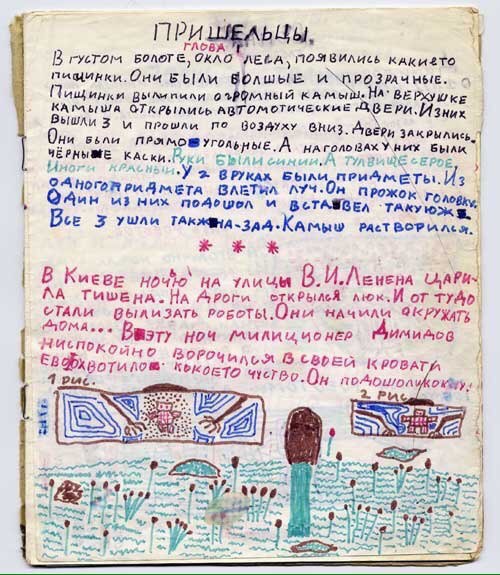 ПРИШЕЛЬЦЫ.
ГЛОВА 1
В ГУСТОМ БОЛОТЕ, ОКЛО ЛЕСА, ПОЯВИЛИСЬ КАКИЕТО
ПИЩИНКИ. ОНИ БЫЛИ БОЛШЫЕ И ПРОЗРАЧНЫЕ.
ПИЩИНКИ ВЫЛИПИЛИ ОГРОМНЫЙ КАМЫШ. НА ВЕРХУШКЕ
КАМЫША ОТКРЫЛИСЬ АВТОМОТИЧЕСКИЕ ДВЕРИ. ИЗ НИХ
ВЫШЛИ 3 И ПРОШЛИ ПО ВОЗДУХУ ВНИЗ. ДВЕРИ ЗАКРЫЛИСЬ.
ОНИ БЫЛИ ПРЯМОУГОЛЬНЫЕ. А НА ГОЛОВАХ У НИХ БЫЛИ
ЧЁРНЫЕ КАСКИ. РУКИ БЫЛИ СИНИИ. А ТУЛВИЩЕ СЕРОЕ,
НИОГИ КРАСНЫИ. У 2 В РУКАХ БЫЛИ ПРИДМЕТЫ. ИЗ
ОДНОГО ПРИДМЕТА ВЛЕТИЛ ЛУЧ. ОН ПРОЖОК ГОЛОВКУ.
ОДИН ИЗ НИХ ПОДОШОЛ И ВСТАВЕЛ ТАКУЮЖ
ВСЕ 3 УШЛИ ТАКЖ НА-ЗАД. КАМЫШ РАСТВОРИЛСЯ.
* * *
В КИЕВЕ НОЧЬЮ НА УЛИЦЫ В.И.ЛЕНЕНА ЦАРИ-
ЛА ТИШЕНА. НА ДРОГИ ОТКРЫЛСЯ ЛЮК. И ОТ ТУДО
СТАЛИ ВЫЛИЗАТЬ РОБОТЫ. ОНИ НАЧИЛИ ОКРУЖАТЬ
ДОМА... В ЭТУ НОЧ МИЛИЦИОНЕР ДИМИДОВ
НИСПОКОЙНО ВОРОЧИЛСЯ В СВОЕЙ КРОВАТИ
ЕВО ХВОТИЛО КОКОЕТО ЧУСТВО. ОН ПОДОШОЛ КОК
1 РИС.
2 РИС.